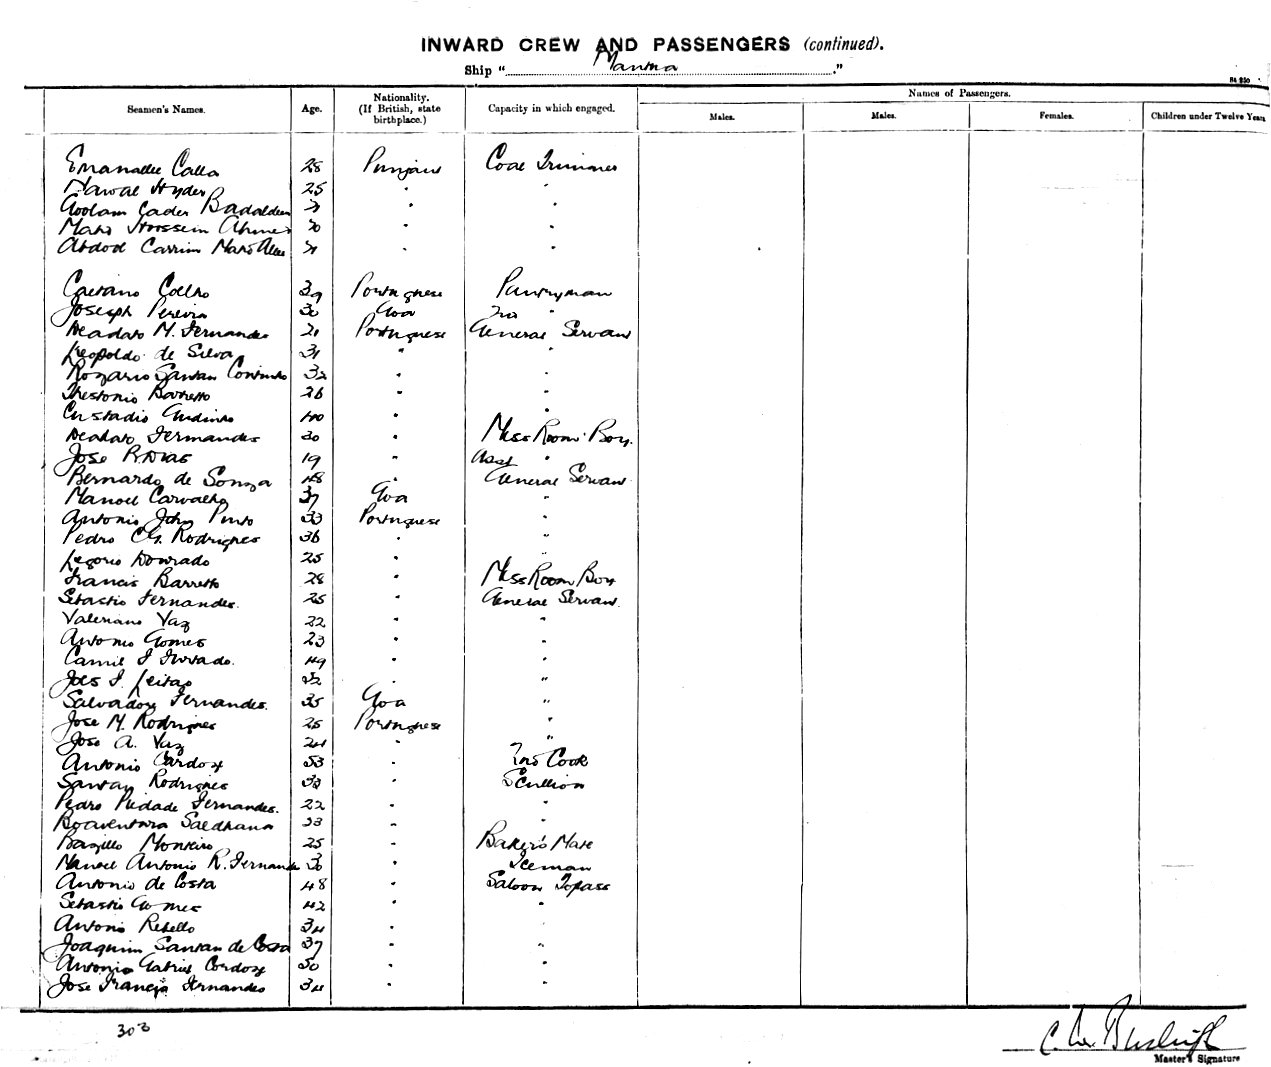 INWARD CREW AND PASSENGERS (continued).
Ship " Mantua "
Seamen's Names. Age. Nationality. (If British, state birthplace.) Capacity in which engaged. Names of Passengers.
Males. Males. Females. Children under Twelve Years
Emanallee Calla 28 Punjaub Coal Trimmer
Nawal Hyder 25 " "
Goolam Cader Badaldeen " "
Hoossein " "
Abdool Carrim " "
Caetano Coelho 39 Portuguese Pantryman
Joseph Pereira 30 Goa 2nd "
Deadato M. Fernandes 21 Portuguese General Servant
Leopoldo de Silva 31 " "
Rozario Santan 32 " "
Barretto 26 " "
Custadio 40 " "
Deadato Fernandes 30 " Mess Room Boy.
Jose R. Dias 19 " Asst "
Bernardo de Souza 48 " General Servant
Manoel Carvalho 37 Goa "
Antonio John Pinto 33 Portuguese "
Pedro Rodrigues 36 " "
Dourado 25 " "
Francis Barretto 28 " Mess Room Boy
Sebastio Fernandes. 25 " General Servant.
Valeriano Vaz 22 " "
Antonio Gomes 23 " "
Camil Furtado. 49 " "
Leitao 32 " "
Salvadory Fernandes. 35 Goa "
Jose M. Rodrigues 25 Portuguese "
Jose A. Vaz 24 " "
Antonio Cardoz 53 " 2nd Cook
Santan Rodrigues " Scullion
Pedro Piedade Fernandes. 22 " "
Boaventura Saldhana 23 " "
Bazilio Monteiro 25 " Baker's Mate
Manoel Antonio R. Fernandes 30 " Iceman
Antonio de Costa 48 " Saloon Topass
Sebastio Gomes 42 " "
Antonio Rebello 34 " "
Joaquim Santan de Costa 37 " "
Antonio Gabriel Cordoz 50 " "
Jose Fernandes 34 " "
303
Master's Signature